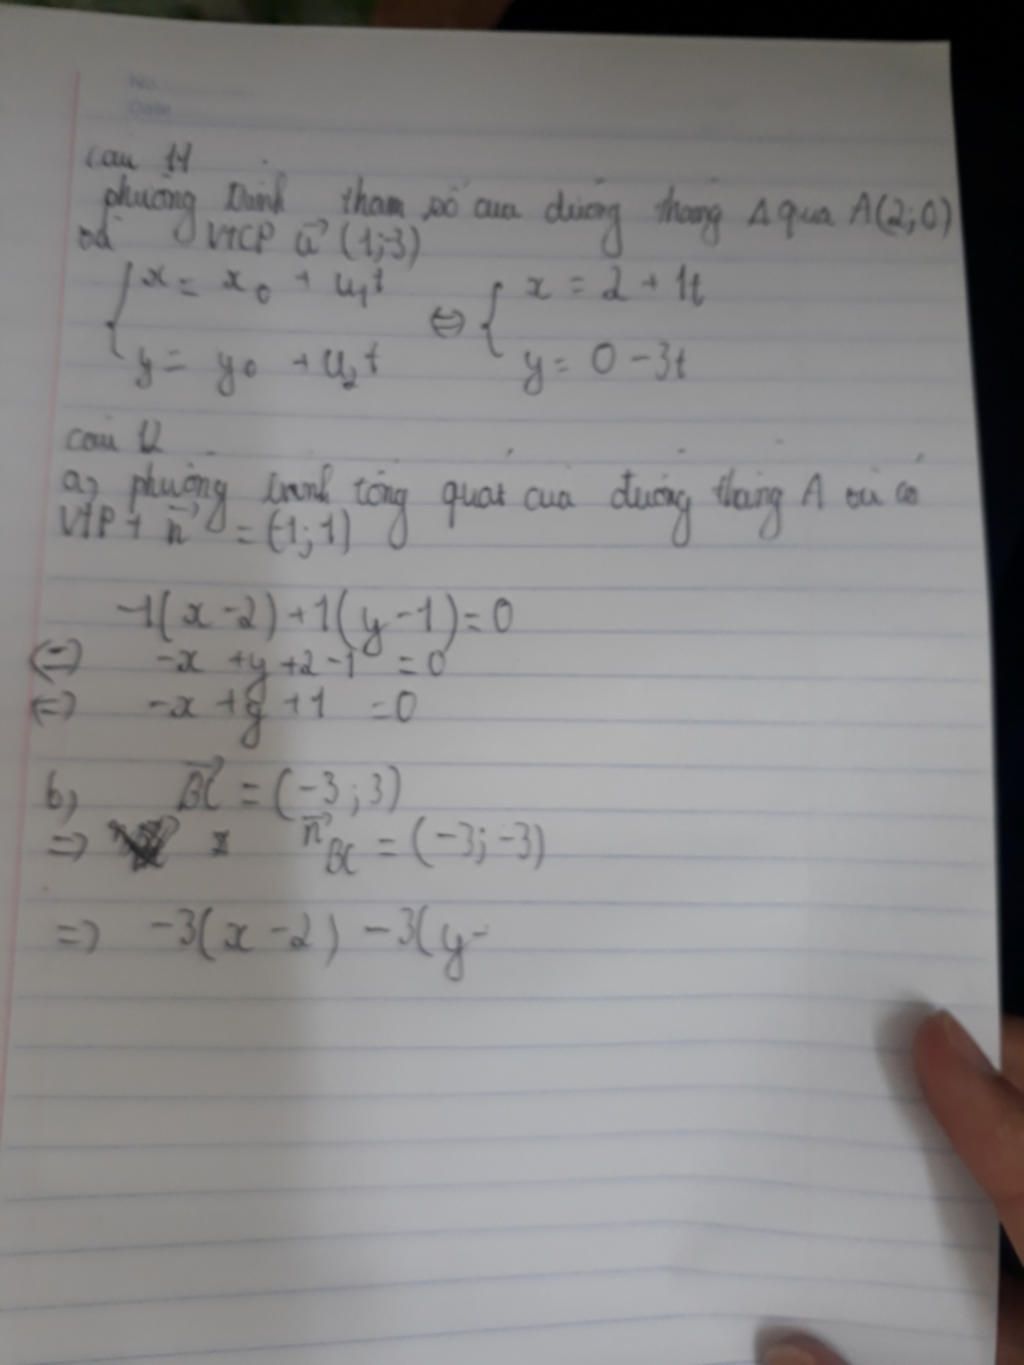 No.
Date
câu 11
phương trình tham số của đường thẳng Δ qua A(2;0)
và VTCP u⃗ (1;-3)
{ x = x₀ + u₁t ⇔ { x = 2 + 1t
y = y₀ + u₂t y = 0 - 3t
câu 12
a, phương trình tổng quát của đường thẳng A và có
VTPT n⃗ = (-1; 1)
-1(x-2)+1(y-1)=0
(=) -x +y +2-1 =0
(=) -x +y +1 =0
b, BC⃗ = (-3; 3)
=> n⃗BC = (-3; -3)
=> -3(x-2) -3(y-